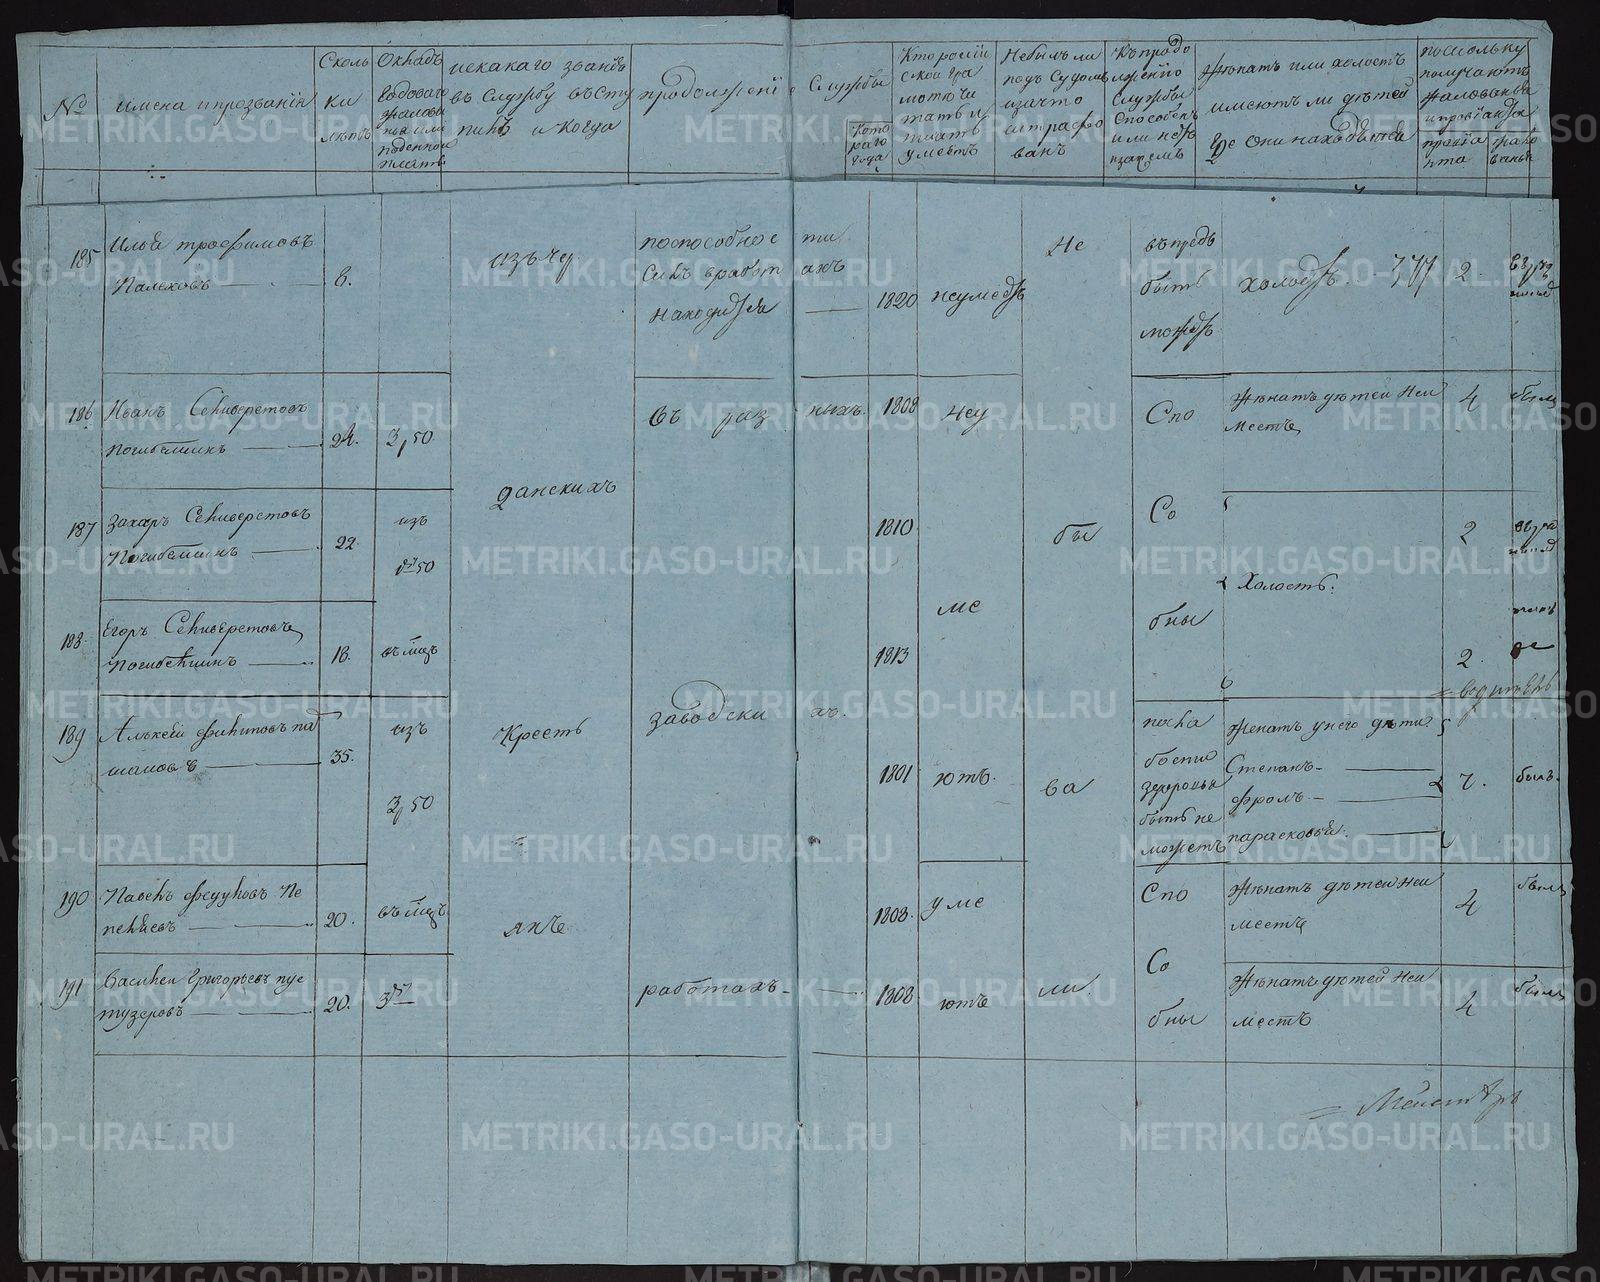 №
имена и прозвании
Сколь
ки
летъ
Окладъ
Годоваго
жалова
нья или
поденной
платы
искакаго званія
въ службу въсту
пилъ и когда
продолженіе Службы
Кото
раго
года
Кто россій
ской гра
мотѣ чи
тать и
писать
умеетъ
Небылъ ли
подъ судомъ
изачто
штрафо
ванъ
Къ продо
лженію
Службы
Способенъ
или нетъ
Женатъ или холостъ
имеютъ ли детей
где они находятся
поскольку
получаютъ
жалованья
и провианта
провиа
нта
185
Илья трофимовъ
Палеховъ
8.
изъ чер
поспособнос ти
силъ вработ ахъ
находится
1820
неумеетъ
Не
въпредь
быть
можетъ
холостъ.
377
2.
186
Иванъ Селиверстовъ
погибелкинъ
24.
3,50
въ раз ныхъ.
1808
неу
Спо
Женатъ детей неи
меетъ
4
былъ
187
Захаръ Селиверстовъ
Погибелкинъ
22
изъ
50
данскихъ
1810
бы
Со
2
188
Егоръ Селиверстовъ
погибелкинъ
18.
въ мцъ
1813
ме
бны
Холостъ.
2.
189
Алексей филиповъ
35.
изъ
3,50
кресть
заводски хъ.
1801
ютъ.
ва
посла
бости
здоровья
быть не
можетъ
Женатъ унего дети
Степанъ
фролъ
парасковья.
7.
былъ.
190
Павелъ федуловъ Пе
пеляевъ
20.
въ мцъ
янъ
1808.
уме
Спо
Женатъ детей неи
меетъ
4
былъ
191
Василей Григорьевъ пус
тузеровъ
20.
3
работахъ
1808
ютъ
ли
Со
бны
Женатъ детей неи
меетъ
4
былъ
METRIKI.GASO-URAL.RU